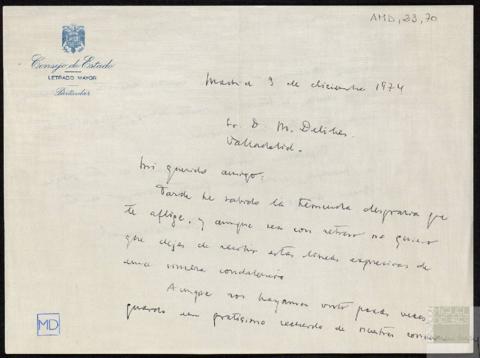 AMD, 23, 70
Consejo de Estado
LETRADO MAYOR
Particular
Madrid 9 de diciembre 1974
Sr. D. M. Delibes.
Valladolid.
Mi querido amigo:
Tarde he sabido la tremenda desgracia que
te aflige, y aunque sea con retraso no quiero
que dejes de recibir estas líneas expresivas de
mi sincera condolencia
Aunque nos hayamos visto pocas veces,
guardo un gratísimo recuerdo de nuestras
MD